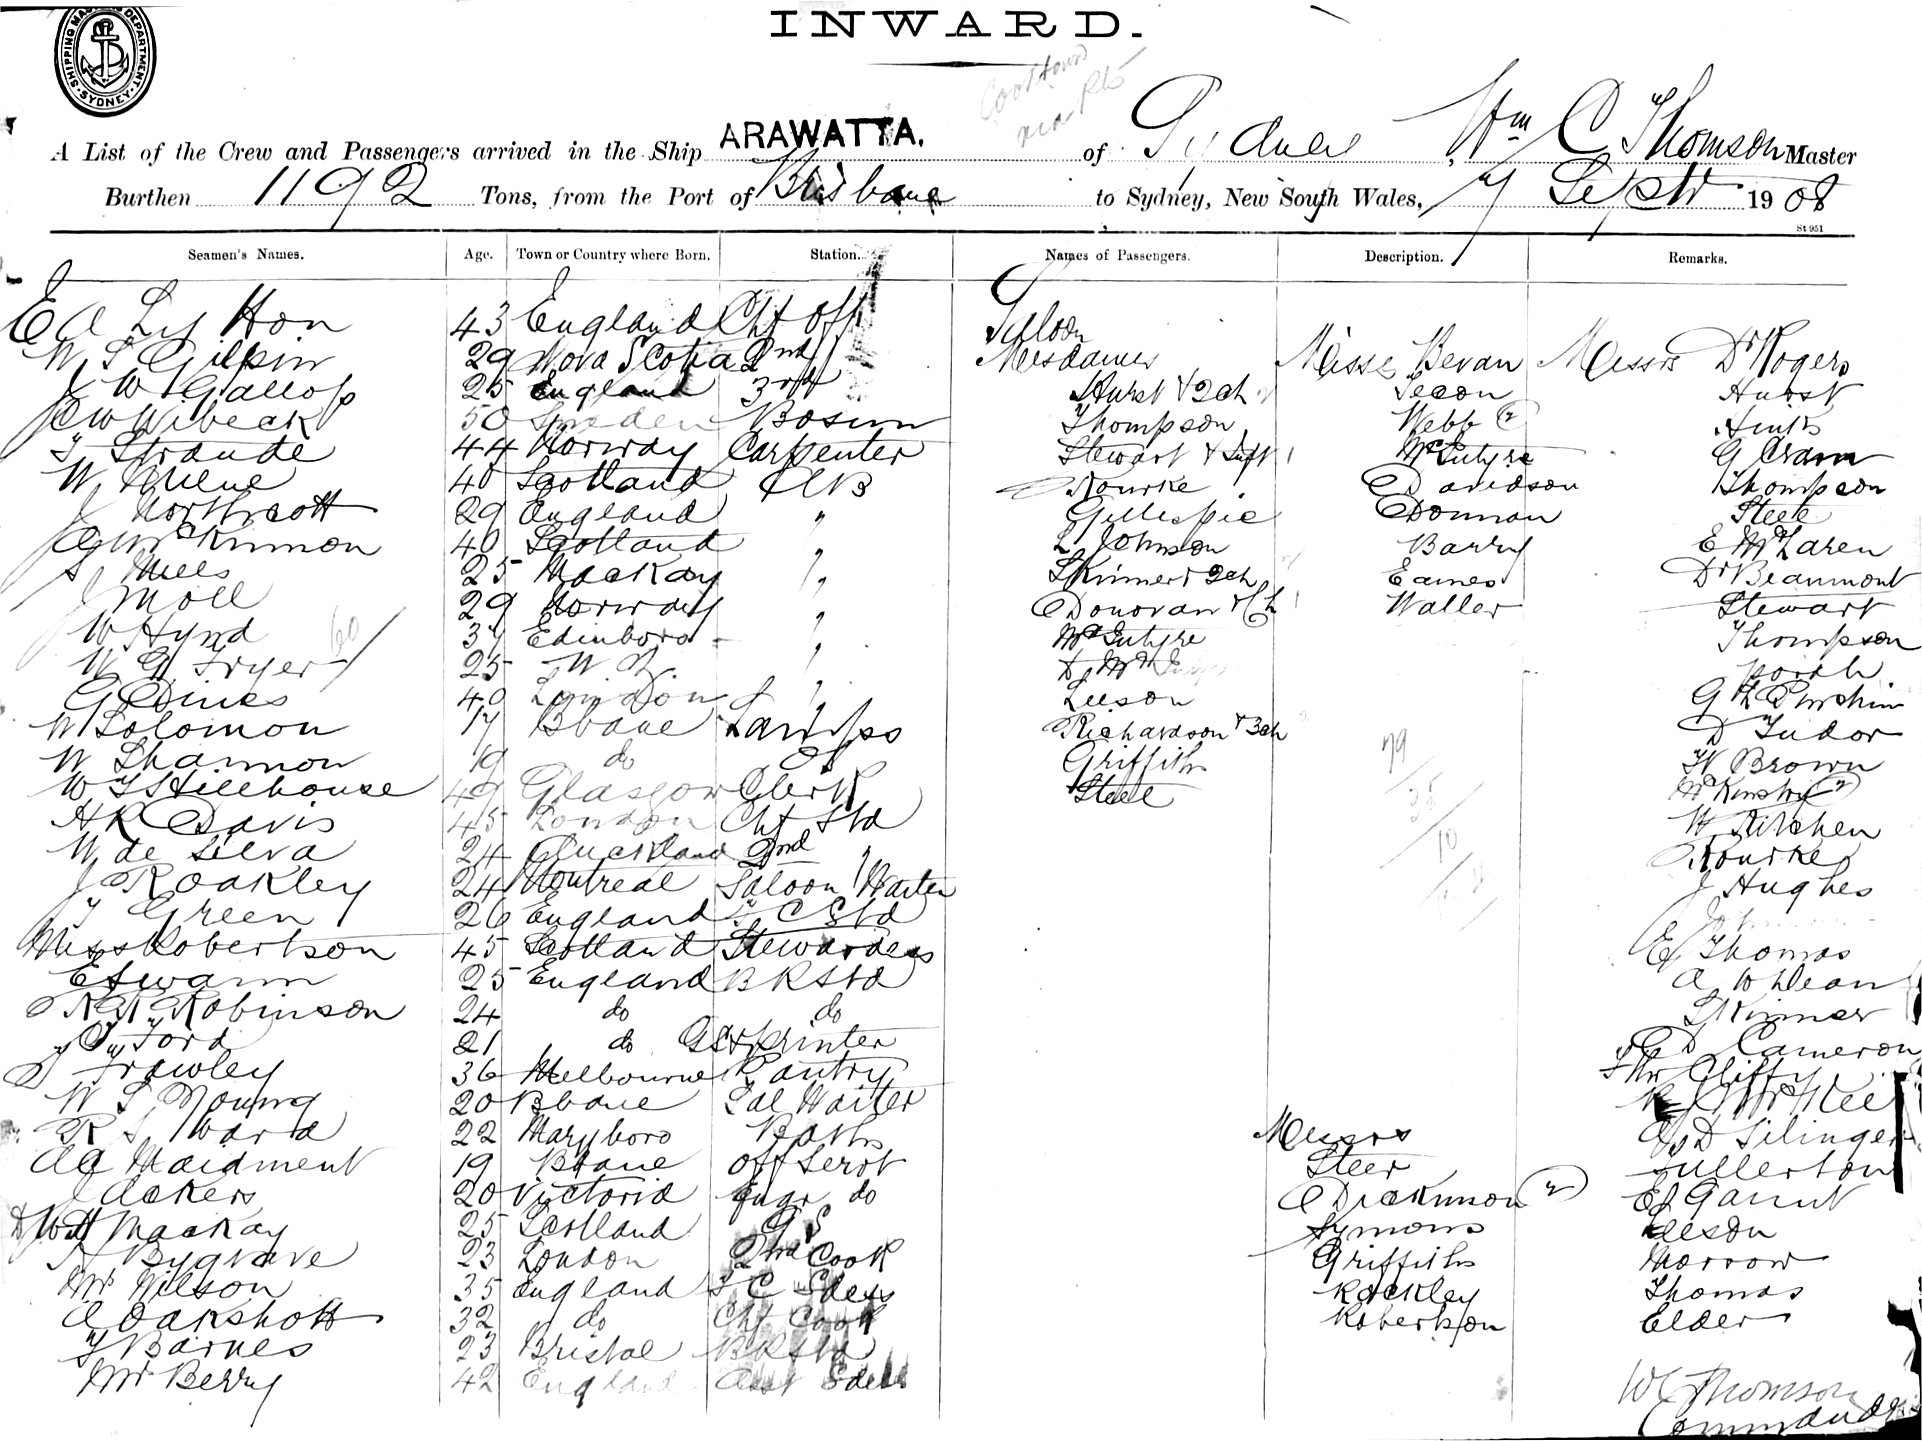 INWARD.
SHIPPING MASTERS DEPARTMENT. SYDNEY.
Cooktown
via Pts
A List of the Crew and Passengers arrived in the Ship ARAWATTA. of Sydney Wm C Thomson Master
Burthen 1192 Tons, from the Port of Brisbane to Sydney, New South Wales, 7 Sept 1908
St 951
Seamen's Names. Age. Town or Country where Born. Station. Names of Passengers. Description. Remarks.
E A Lytton 43 England Chf Off
W S Gilpin 29 Nova Scotia 2nd
J W Gallop 25 England 3rd
C W Wibeck 50 Sweden Bosun
T Straude 44 Norway Carpenter
W Milne 40 Scotland AB
J Northcott 29 England "
G McKinnon 40 Scotland "
S Mills 25 Mackay "
J Moll 29 Norway "
W Hynd 37 Edinboro "
W G Fryer 25 N Z "
G Dines 40 London "
W Solomon 17 Bbane Lamps
W Shannon 19 do
W T Hillhouse 49 Glasgow Clerk
H R Davis 45 London Chf Std
W de Silva 24 Auckland 2nd "
J R Oakley 24 Montreal Saloon Waiter
T Green 26 England F C Std
Miss Robertson 45 Scotland Stewardess
E Swann 25 England B R Std
R W Robinson 24 do do
G Ford 21 do & Printer
J Frawley 36 Melbourne Pantry
W S Young 20 Bbane Sal Waiter
R S Ward 22 Maryboro Baths
A A Maidment 19 Bbane Off Servt
J Ackers 20 Victoria Engr do
W H Mackay 25 Scotland G S
H Bygrave 23 London 2nd Cook
Mrs Wilson 35 England
A Oakshott 32 do Chf Cook
T Barnes 23 Bristol B R Std
Mr Berry 42 England
Saloon
Mesdames
Hurst & 2 ch
Thompson
Stewart & Inft
Rourke
Gillespie
L Johnson
Skinner & 2 ch
Donovan & Ch
McIntyre
Leeson
Richardson & 3 ch
Griffiths
Steel
Misses Bevan
Secon
Webb (2)
McIntyre
Davidson
Donnan
Barry
Eames
Waller
Messrs
Steer
Dickinson (2)
Symons
Griffiths
Rackley
Robertson
Messrs Dr Rogers
Hurst
Hinks
G Cran
Thompson
Steele
E McLaren
Dr Beaumont
Stewart
Thompson
D Tudor
W Brown
W Kitchen
Rourke
J Hughes
E Thomas
A W Dean
Skinner
D Cameron
Fullerton
E J Garnut
Morrow
Thomas
Elder
W C Thomson
Commander